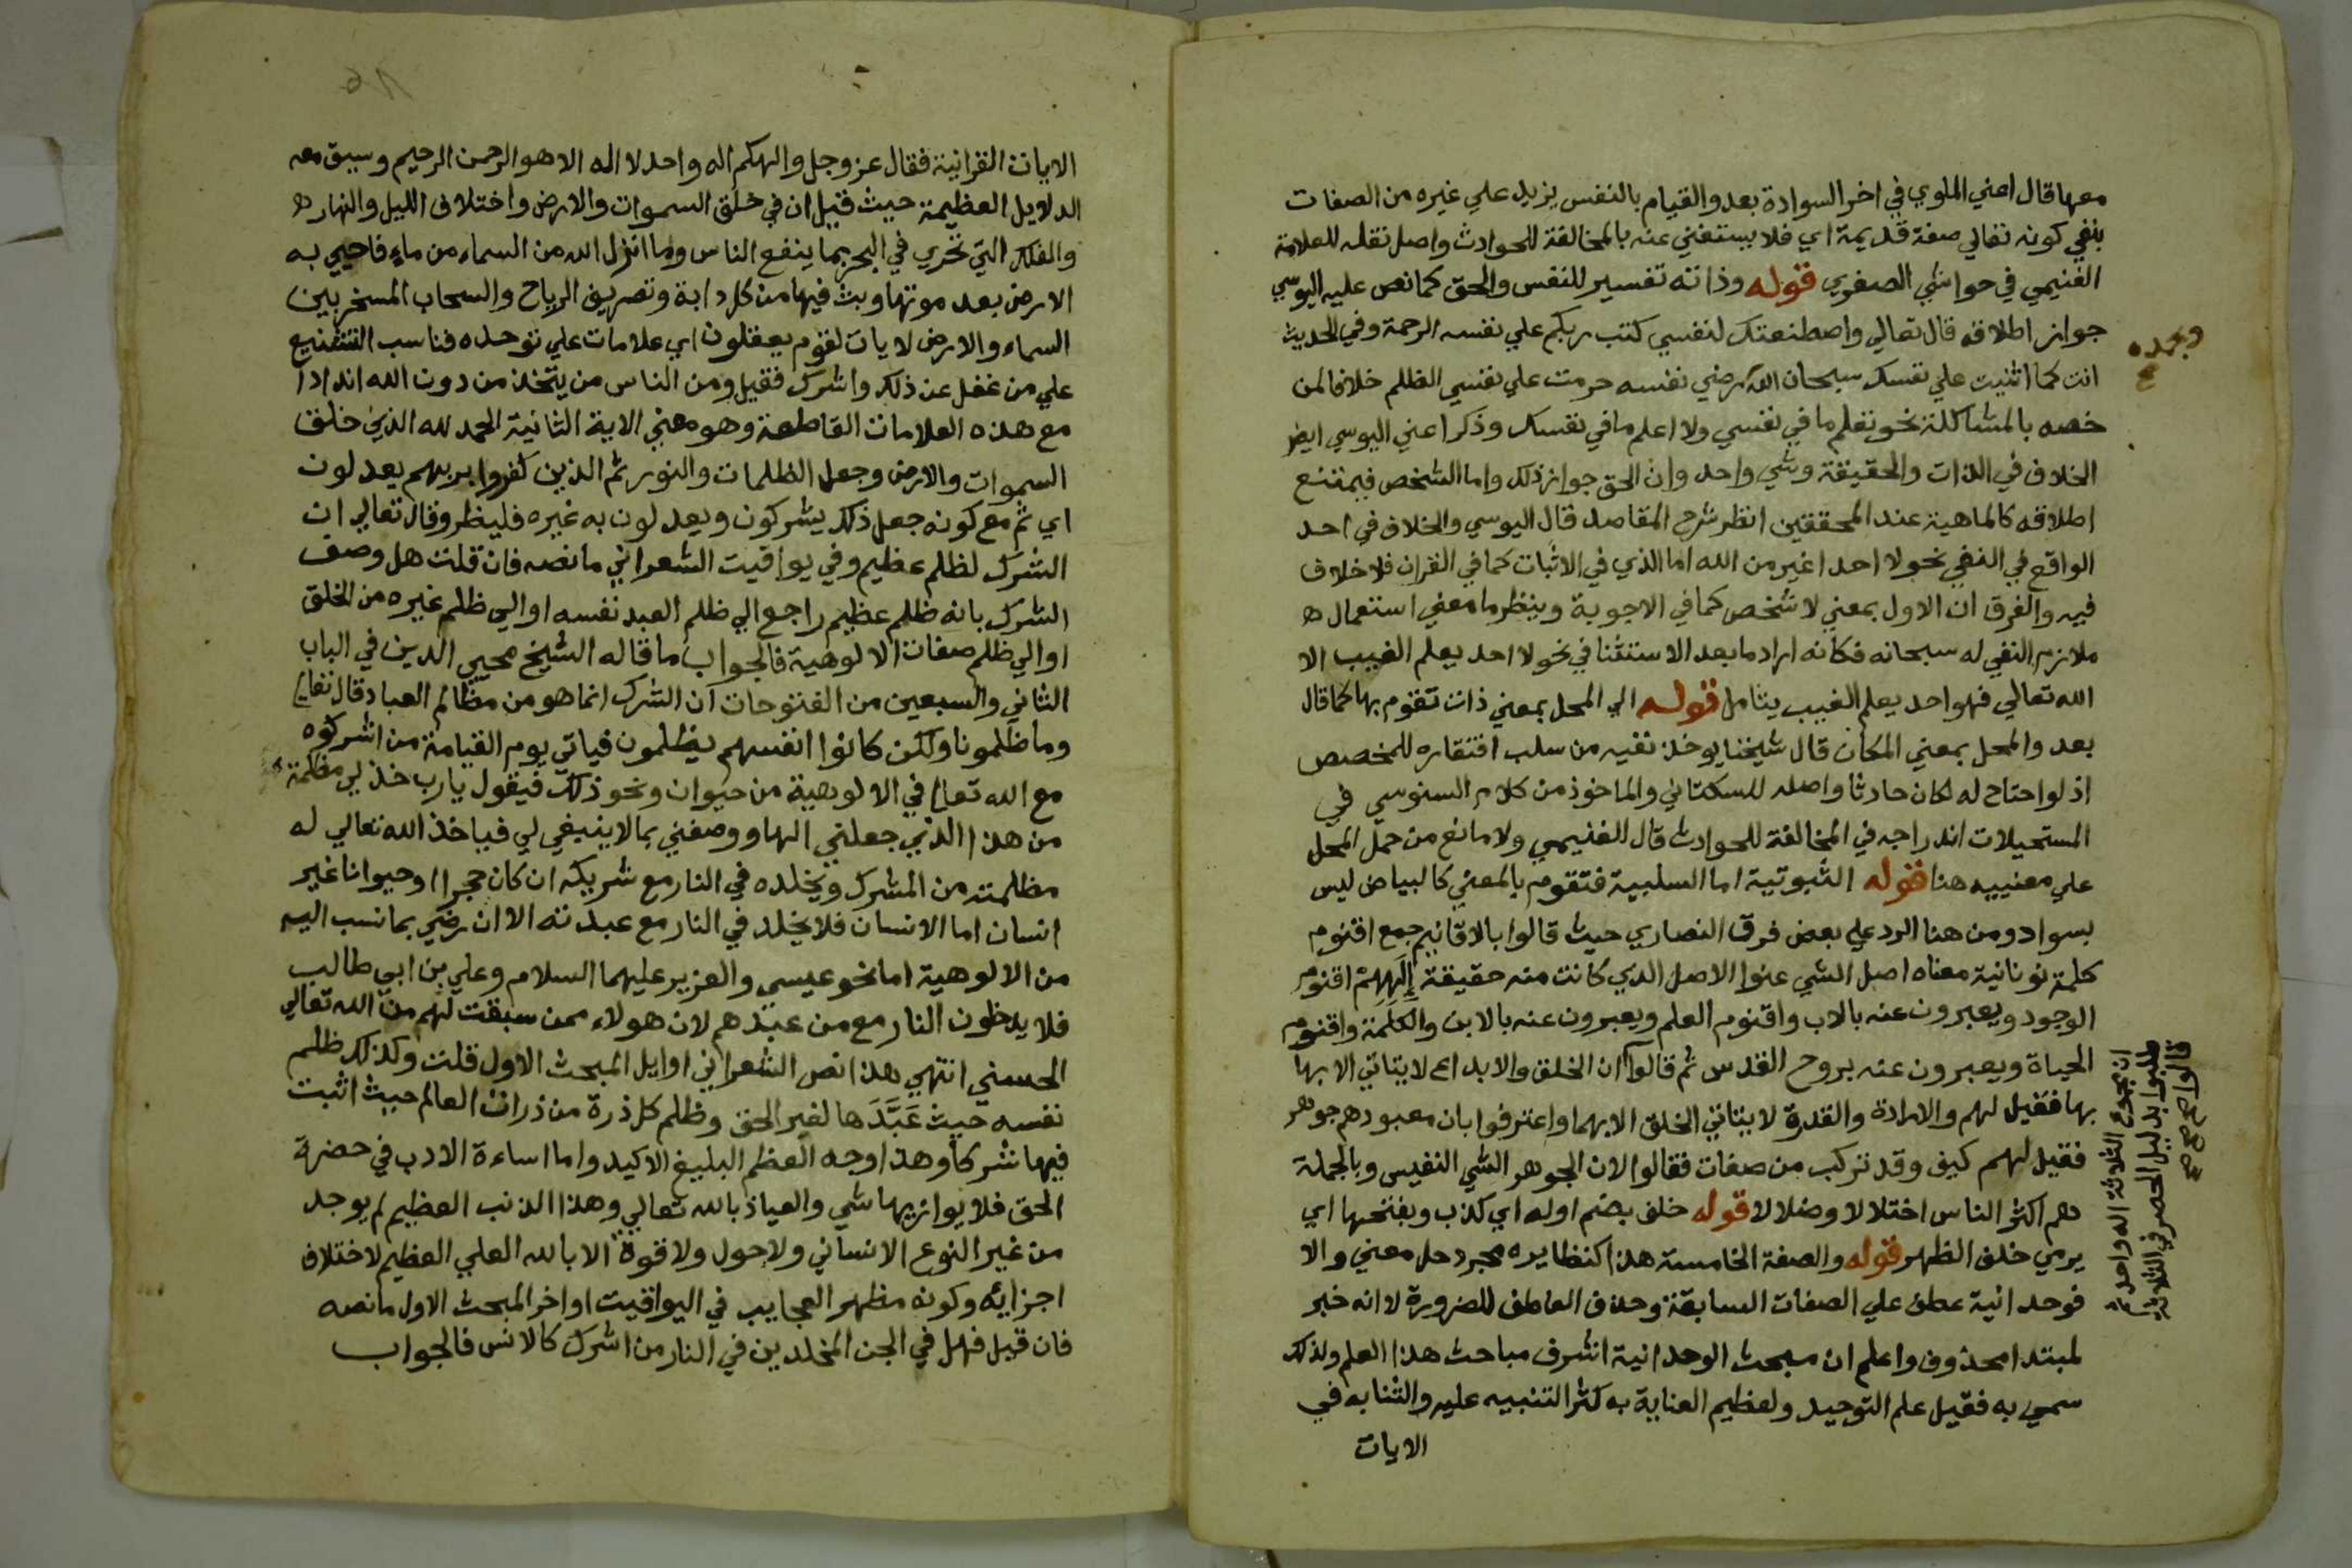 معها قال اعني الملوي في اخر السوادة بعد والقيام بالنفس يزيد علي غيره من الصفات
بنفي كونه تعالي صفة قديمة اي فلا يستغني عنه بالمخالفة للحوادث واصل نقله للعلامة
الغنيمي في حواشي الصغري قوله وذاته تفسير للنفس والحق كما نص عليه اليوسي
جواز اطلاقه قال تعالي واصطنعتك لنفسي كتب ربكم علي نفسه الرحمة وفي الحديث
انت كما اثنيت علي نفسك سبحان الله رضي نفسه حرمت علي نفسي الظلم خلافا لمن
وبحمده
خصه بالمشاكلة نحو تعلم ما في نفسي ولا اعلم ما في نفسك وذكر اعني اليوسي ايض
الخلاف في الذات والحقيقة وشي واحد وان الحق جواز ذلك واما الشخص فيمتنع
اطلاقه كالماهية عند المحققين انظر شرح المقاصد قال اليوسي والخلاف في احد
الواقع في النفي نحو لا احد اغير من الله اما الذي في الاثبات كما في القران فلا خلاف
فيه والفرق ان الاول بمعني لا شخص كما في الاجوبة وينظر ما معني استعمال
ملازم النفي له سبحانه فكانه اراد ما بعد الاستثنا في نحو لا احد يعلم الغيب الا
الله تعالي فهو احد يعلم الغيب يتامل قوله الي المحل بمعني ذات تقوم بها كما قال
بعد والمحل بمعني المكان قال شيخنا يوخذ نفيه من سلب افتقاره للمخصص
اذ لو احتاح له لكان حادثا واصله للسكتاني والماخوذ من كلام السنوسي في
المستحيلات اندراجه في المخالفة للحوادث قال الغنيمي ولا مانع من حمل المحل
علي معنييه هنا قوله الثبوتية اما السلبية فتقوم بالمعني كالبياض ليس
بسواد ومن هنا الرد علي بعض فرق النصاري حيث قالوا بالاقانيم جمع اقنوم
كلمة نونانية معناه اصل الشي عنوا الاصل الذي كانت منه حقيقة إلههم اقنوم
الوجود ويعبرون عنه بالاب واقنوم العلم ويعبرون عنه بالابن والكلمة واقنوم
الحياة ويعبرون عنه بروح القدس ثم قالوا ان الخلق والابداع لا يتاتي الا بها
ان مجموع الثلاثة اله واحد
طلبوا بدليل الحصر في الثلاثة
قالوا صح صح
بها فقيل لهم والارادة والقدرة لا يتاتي الخلق الا بهما واعترفوا بان معبودهم جوهر
فقيل لهم كيف وقد تركب من صفات فقالوا لان الجوهر الشي النفيس وبالجملة
هم اكثر الناس اختلالا وضلالا قوله خلف بضم اوله اي كذب وبفتحها اي
يرمي خلف الظهر قوله والصفة الخامسة هذا كنظايره مجرد حل معني والا
فوحدانية عطف علي الصفات السابقة وحذف العاطف للضرورة لا انه خبر
لمبتدا محذوف واعلم ان مبحث الوحدانية اشرف مباحث هذا العلم ولذلك
سمي به فقيل علم التوحيد ولعظيم العناية به كثر التنبيه عليه والثنا به في
الايات
الايات القرانية فقال عز وجل والهكم اله واحد لا اله الا هو الرحمن الرحيم وسيق معه
الدلايل العظيمة حيث قيل ان في خلق السموات والارض واختلاف الليل والنهار
والفلك التي تجري في البحر بما ينفع الناس وما انزل الله من السماء من ماء فاحيي به
الارض بعد موتها وبث فيها من كل دابة وتصريف الرياح والسحاب المسخر بين
السماء والارض لايات لقوم يعقلون اي علامات علي توحده فناسب التشنيع
علي من غفل عن ذلك واشرك فقيل ومن الناس من يتخذ من دون الله اندادا
مع هذه العلامات القاطعة وهو معني الاية الثانية الحمد لله الذي خلق
السموات والارض وجعل الظلمات والنور ثم الذين كفروا بربهم يعدلون
اي ثم مع كونه جعل ذلك يشركون ويعدلون به غيره فلينظر وقال تعالي ان
الشرك لظلم عظيم وفي يواقيت الشعراني ما نصه فان قلت هل وصف
الشرك بانه ظلم عظيم راجع الي ظلم العبد نفسه او الي ظلم غيره من الخلق
او الي ظلم صفات الالوهية فالجواب ما قاله الشيخ محيي الدين في الباب
الثاني والسبعين من الفتوحات ان الشرك انما هو من مظالم العباد قال تعالي
وما ظلمونا ولكن كانوا انفسهم يظلمون فياتي يوم القيامة من اشركوه
مع الله تعالي في الالوهية من حيوان ونحو ذلك فيقول يارب خذ لي مظلمة
من هذا الذي جعلني الها ووصفني بما لا ينبغي لي فياخذ الله تعالي له
مظلمته من المشرك ويخلده في النار مع شريكه ان كان حجرا او حيوانا غير
انسان اما الانسان فلا يخلد في النار مع عبدته الا ان رضي بما نسب اليه
من الالوهية اما نحو عيسي والعزير عليهما السلام وعلي بن ابي طالب
فلا يدخلون النار مع من عبدهم لان هولاء ممن سبقت لهم من الله تعالي
الحسني انتهي هذا نص الشعراني اوايل المبحث الاول قلت وكذلك ظلم
نفسه حيث عَبَّدَها لغير الحق وظلم كل ذرة من ذرات العالم حيث اثبت
فيها شركا وهذا وجه العظم البليغ الاكيد واما اساءة الادب في حضرة
الحق فلا يوازيها شي والعياذ بالله تعالي وهذا الذنب العظيم لم يوجد
من غير النوع الانساني ولا حول ولا قوة الا بالله العلي العظيم لاختلاف
اجزائه وكونه مظهر العجايب في اليواقيت اواخر المبحث الاول ما نصه
فان قيل فهل في الجن المخلدين في النار من اشرك كالانس فالجواب